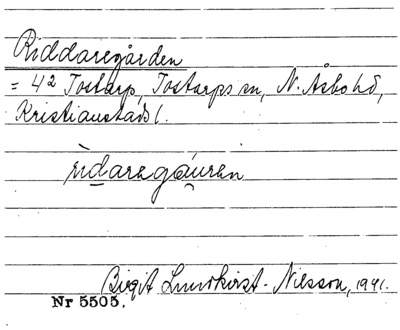 Riddaregården
= 4² Tostarp, Tostarps sn, N. Åsbo hd,
Kristianstads l.
rìdaregåu̯ren
Birgit Lundkvist-Nilsson, 1941.
Nr 5505.